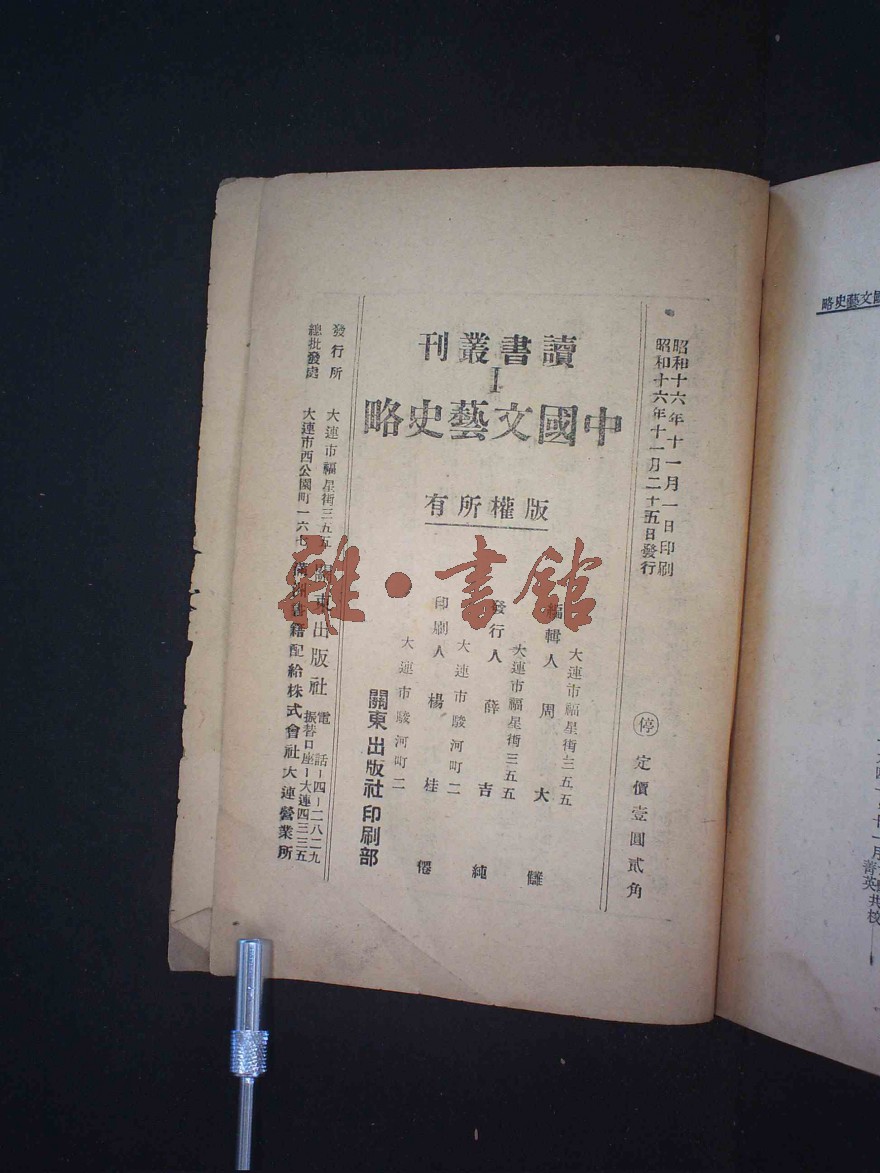 昭和十六年十一月一日印刷
昭和十六年十一月二十五日發行
停 定價壹圓貳角
讀書叢刊
1
中國文藝史略
版權所有
大連市福星街三五五
編輯人 周大
大連市福星街三五五
發行人 薛吉純
大連市駿河町二
印刷人 楊桂
大連市駿河町二
關東出版社印刷部
發行所 大連市福星街三五五 關東出版社 電話—四—二八二九
振替口座—大連四三三五
總批發處 大連市西公園町一六七 滿洲書籍配給株式會社大連營業所
雜·書館
國文藝史略
菁英共校